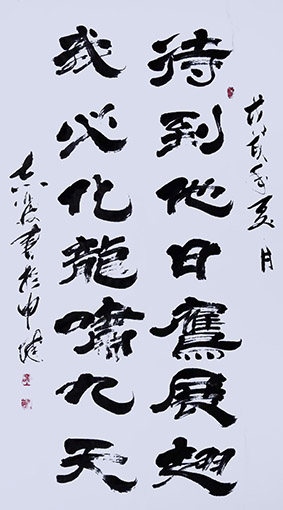 年夏月
待到他日鷹展翅
我必化龍嘯九天
書於申